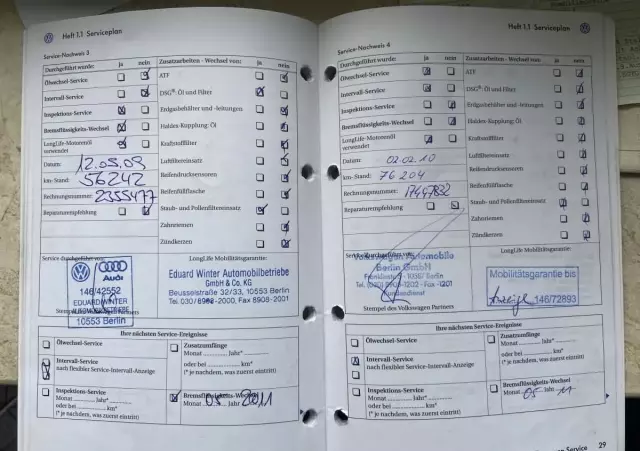 Heft 1.1 Serviceplan
Service-Nachweis 3
Durchgeführt wurde: ja nein
Ölwechsel-Service
Intervall-Service
Inspektions-Service
Bremsflüssigkeits-Wechsel
LongLife-Motorenöl
verwendet
Datum: 12.05.09
km-Stand: 56242
Rechnungsnummer: 2355477
Reparaturempfehlung
Zusatzarbeiten - Wechsel von: ja nein
ATF
DSG® Öl und Filter
Erdgasbehälter und -leitungen
Haldex-Kupplung: Öl
Kraftstofffilter
Luftfiltereinsatz
Reifendrucksensoren
Reifenfüllflasche
Staub- und Pollenfiltereinsatz
Zahnriemen
Zündkerzen
Service durchgeführt von:
Audi
146/42552
EDUARD WINTER
10553 Berlin
LongLife Mobilitätsgarantie:
Eduard Winter Automobilbetriebe
GmbH & Co. KG
Beusselstraße 32/33, 10553 Berlin
Tel. 030/8908-2000, Fax 8908-2201
Ihre nächsten Service-Ereignisse
Ölwechsel-Service
Intervall-Service
nach flexibler Service-Intervall-Anzeige
Inspektions-Service
Monat ........ Jahr*
oder bei ........ km*
(* je nachdem, was zuerst eintritt)
Zusatzumfänge
Monat ........ Jahr*
oder bei ........ km*
(* je nachdem, was zuerst eintritt)
Bremsflüssigkeits-Wechsel
Monat 05 Jahr 2011
Heft 1.1 Serviceplan
Service-Nachweis 4
Durchgeführt wurde: ja nein
Ölwechsel-Service
Intervall-Service
Inspektions-Service
Bremsflüssigkeits-Wechsel
LongLife-Motorenöl
verwendet
Datum: 02.02.10
km-Stand: 76204
Rechnungsnummer: 17447832
Reparaturempfehlung
Zusatzarbeiten - Wechsel von: ja nein
ATF
DSG® Öl und Filter
Erdgasbehälter und -leitungen
Haldex-Kupplung: Öl
Kraftstofffilter
Luftfiltereinsatz
Reifendrucksensoren
Reifenfüllflasche
Staub- und Pollenfiltereinsatz
Zahnriemen
Zündkerzen
Service durchgeführt von:
Volkswagen Automobile
Berlin GmbH
Stempel des Volkswagen Partners
LongLife Mobilitätsgarantie:
Mobilitätsgarantie bis
Anzeige 146/72893
Ihre nächsten Service-Ereignisse
Ölwechsel-Service
Intervall-Service
nach flexibler Service-Intervall-Anzeige
Inspektions-Service
Monat ........ Jahr*
oder bei ........ km*
(* je nachdem, was zuerst eintritt)
Zusatzumfänge
Monat ........ Jahr*
oder bei ........ km*
(* je nachdem, was zuerst eintritt)
Bremsflüssigkeits-Wechsel
Monat 05 Jahr 11
29